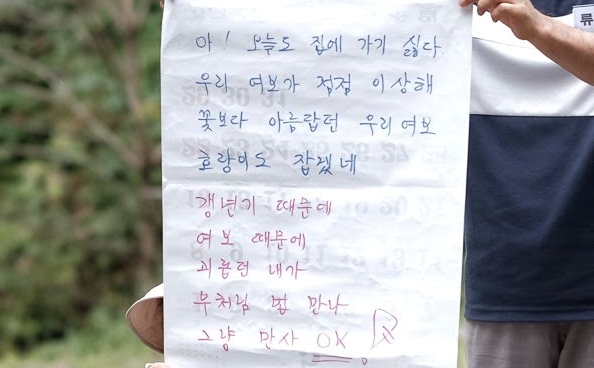 아! 오늘도 집에 가기 싫다
우리 여보가 점점 이상해
꽃보다 아름답던 우리여보
호랑이도 잡겠네
갱년기 때문에
여보 때문에
괴롭던 내가
부처님 법 만나
그냥 만사 OK
류